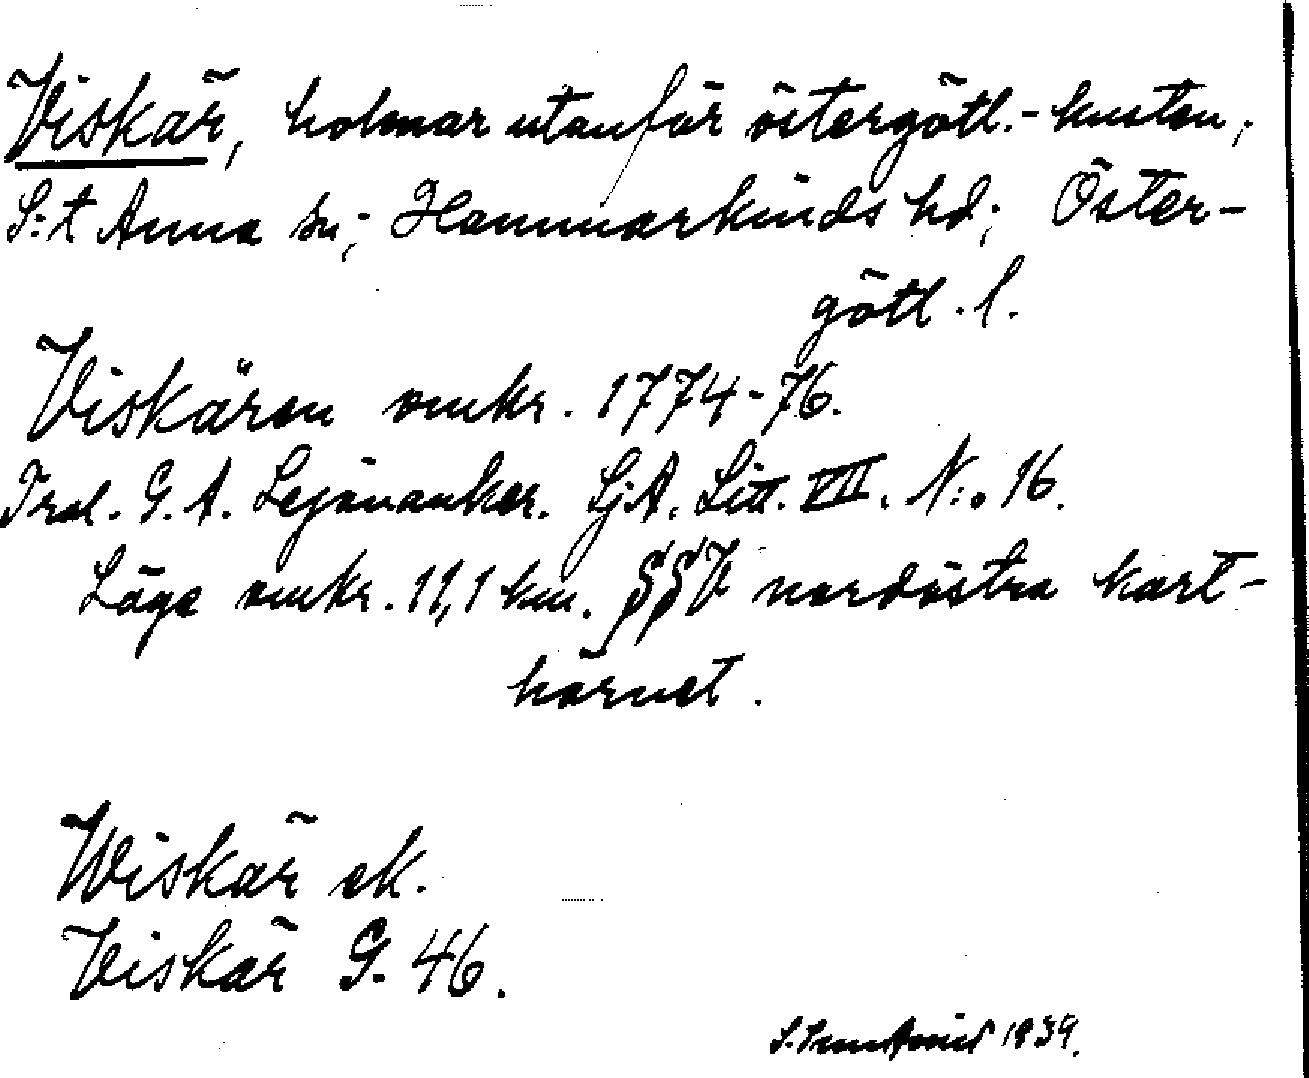 Viskär, holmar utanför östergötl.-kusten;
S:t Anna sn; Hammarkinds hd; Öster-
götl. l.
Viskären omkr. 1774-76.
Frdl. G. A. Lejonanker. Sj.A. Litt. VII. N:o 16.
Läge omkr. 11,1 km. SSV nordöstra kart-
hörnet.
Wiskär ek.
Viskär G. 46.
1939.